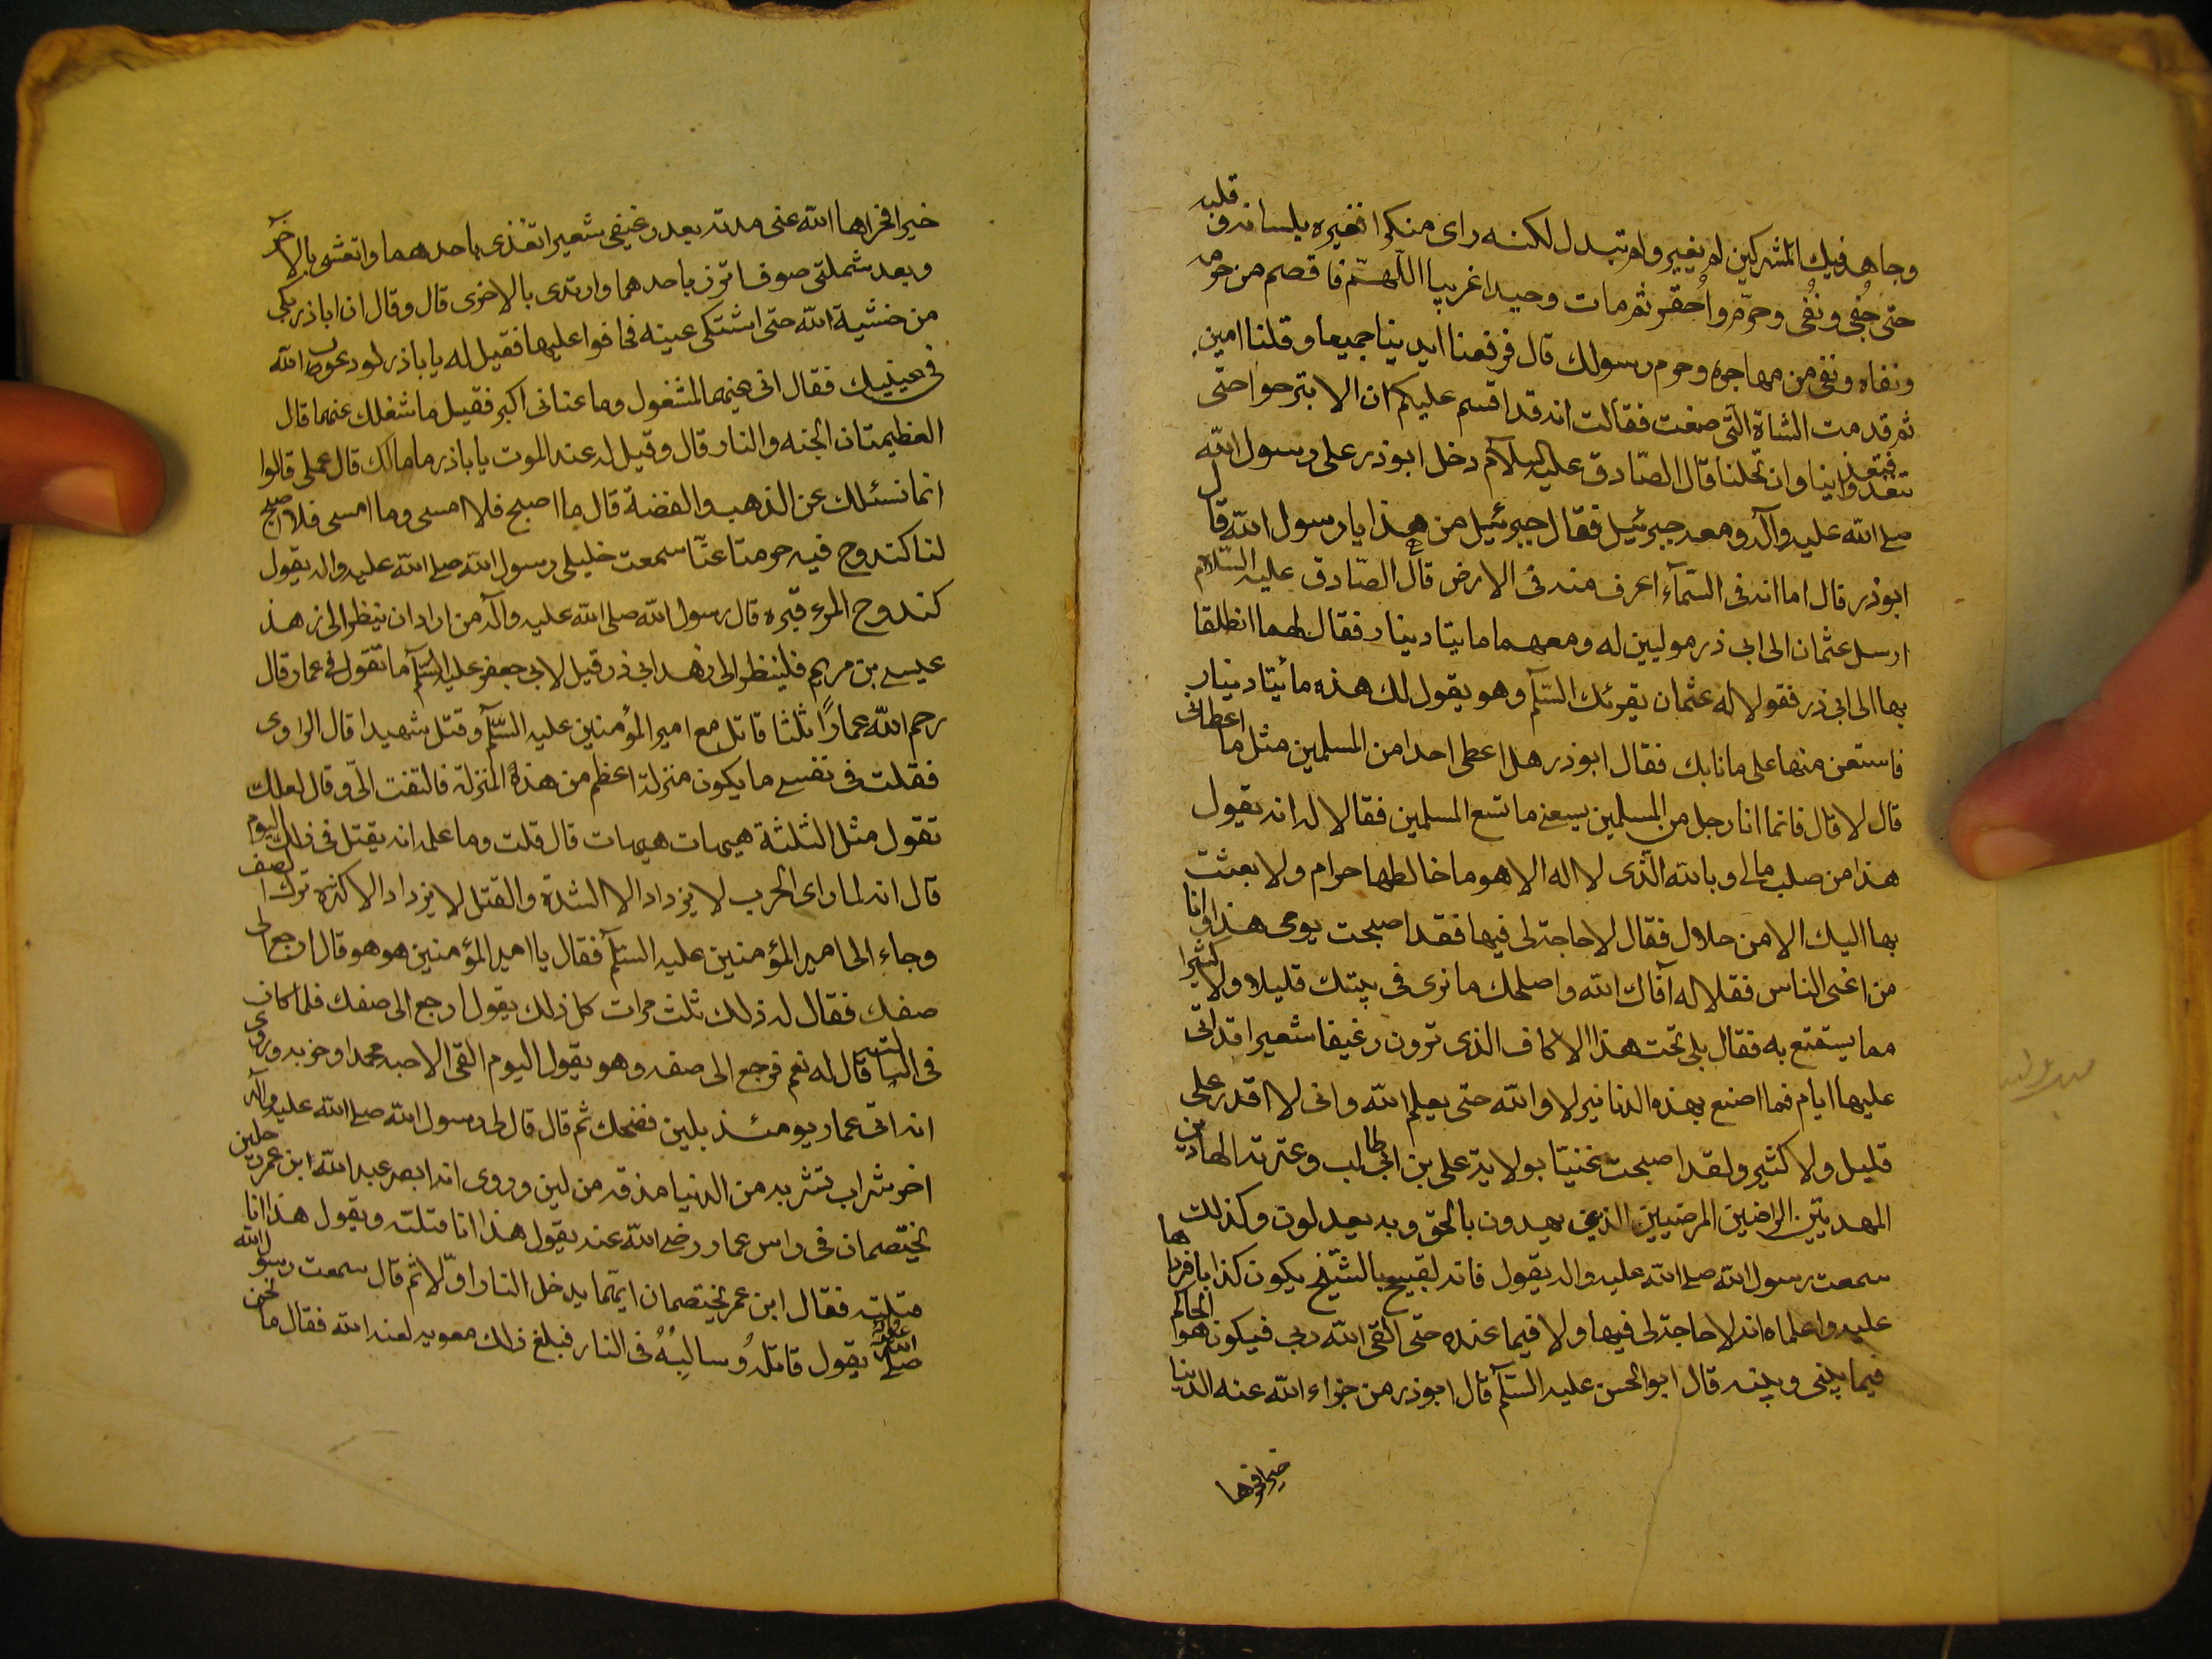 وجاهد فيك المشركين لم يغير ولم تبدل لكنه راى منكرا فغيره بلسانه وقلبه
حتى جُفى ونُفى وحرّم واُحقر ثم مات وحيدا غريبا اللّهمّ فاقصم من حرمه
ونفاه ونفى من مهاجره وحرم رسولك قال فرفعنا ايدينا جميعا وقلنا امين
ثم قدمت الشاة التى صنعت فقالت انه قد اقسم عليكم ان الا تبرحوا حتى
تتغدوا فتغدينا وارتحلنا قال الصّادق عليه السلام دخل ابوذر على رسول الله
صلى الله عليه وآله ومعه جبرئيل فقال جبرئيل من هذا يا رسول الله قال
ابوذر قال اما انه فى السّمآء اعرف منه فى الارض قال الصّادق عليه السّلام
ارسل عثمان الى ابى ذر موليين له ومعهما مايتا دينار فقال لهما انطلقا
بها الى ابى ذر فقولا له عثمان يقرئك السّلم وهو يقول لك هذه مائيتا دينار
فاستعن منها على مانابك فقال ابوذر هل اعطى احدا من المسلمين مثل ما اعطانى
قال لا قال فانما انا رجل من المسلمين يسعنى ما تسع المسلمين فقالا له انه يقول
هذا من صلب مالى وبالله الّذى لا اله الا هو ما خالطها حرام ولا بعثت
بها اليك الا من حلال فقال لا حاجة لى فيها فقد اصبحت يومى هذا وانا
من اغنى الناس فقلا له آفاك الله واصلحك ما نرى فى بيتك قليلا ولا كثيرا
مما يستمتع به فقال بلى تحت هذا الاكاف الذى ترون رغيفا شعير قد اتى
عليها ايام فما اصنع بهذه الدنانير لا والله حتى يعلم الله وانى لا اقدر على
قليل ولا كثير ولقد اصبحت غنيّا بولاية على بن ابى طالب وعترته الهادين
المهديّين الراضين المرضيين الذين يهدون بالحق وبه يعدلون وكذلك
سمعت رسول الله صلى الله عليه واله يقول فانه لقبيح بالشّيخ يكون كذابا فردها
عليه واعلماه انه لا حاجة لى فيها ولا فيما عنده حتى القى الله ربى فيكون هو الحاكم
فيما بينى وبينه قال ابو الحسن عليه السّلم قال ابوذر من جزاء الله عنه الدّنيا
خيرا فجزاها
خيرا فجزاها الله عنى مذمة بعد رغيفى شعير اتغذى باحدهما واتعشى بالاخر
وبعد شملتى صوف اتزر باحدهما وارتدى بالاخرى قال وقال ان اباذر بكى
من خشية الله حتى اشتكى عينه فخافوا عليها فقيل له يا باذر لو دعوت الله
فى عينيك فقال انى عنهما لمشغول وما عنانى اكبر فقيل ما شغلك عنهما قال
العظيمتان الجنه والنار قال وقيل له عند الموت يا باذر ما مالك قال عملى قالوا
انما نسئلك عن الذهب والفضة قال ما اصبح فلا امسى وما امسى فلا اصبح
لنا كندوج فيه حرمتاعنّا سمعت خليلى رسول الله صلى الله عليه واله يقول
كندوج المرء قبره قال رسول الله صلى الله عليه وآله من اراد ان ينظر الى زهذ
عيسى بن مريم فلينظر الى زهد ابى ذر قيل لابى جعفر عليه السّلم ما تقول فى عمار قال
رحم الله عمارًا ثلثا قاتل مع امير المؤمنين عليه السّلم وقتل شهيدا قال الراوى
فقلت فى نفسى ما يكون منزلة اعظم من هذه المنزلة فالتفت الىّ وقال لعلك
تقول مثل الثلثة هيهات هيهات قال قلت وما علمه انه يقتل فى ذلك اليوم
قال انه لما راى الحرب لا يزداد الا الشدّة والقتل لا يزداد الا كثرة ترك الصف
وجاء الى امير المؤمنين عليه السّلم فقال يا امير المؤمنين هو هو قال ارجع الى
صفك فقال له ذلك ثلث مرات كل ذلك يقول ارجع الى صفك فلما كان
فى الثالثة قال له نعم فرجع الى صفه وهو يقول اليوم القى الاحبه محمدا وحزبه وروى
انه اتى عمار يومئذ بلبن فضحك ثم قال قال لى رسول الله صلى الله عليه وآله
اخر شراب تشربه من الدنيا مذقة من لبن وروى انه ابصر عبد الله ابن عمر رجلين
يختصمان فى راس عمار رضى الله عنه يقول هذا انا قتلته ويقول هذا انا
قتلته فقال ابن عمر يختصمان ايهما يدخل النار اوّلا ثم قال سمعت رسول الله
صلى الله عليه وآله يقول قاتلهُ وسالبُهُ فى النار فبلغ ذلك معويه لعنه الله فقال ما نحن